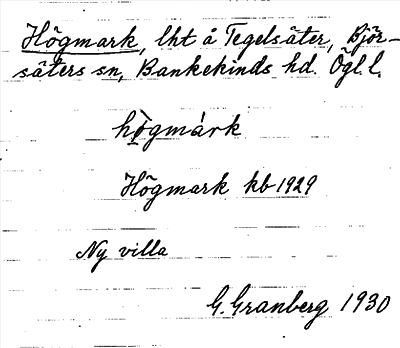 Högmark, lht å Tegelsäter, Björ-
säters sn, Bankekinds hd. Ögl. l.
hò̱gmárk
Högmark kb 1929
Ny villa
G. Granberg 1930